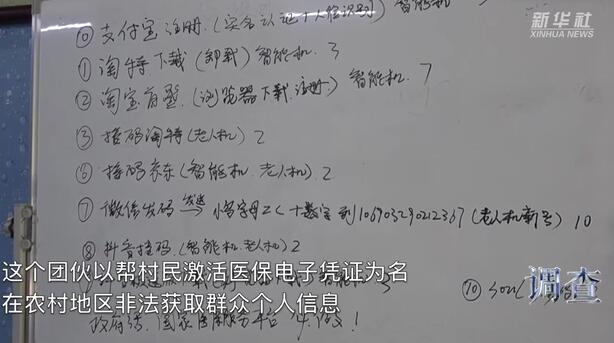 新华社
XINHUA NEWS
智能机
⓪ 支付宝注册.(实名认证+人脸识别)
① 淘特下载(卸载)智能机. 3
② 淘宝首登.(浏览器下载.注册.)智能机. 7
③ 接码淘特(老人机) 2
⑤ 接码京东(智能机.老人机) 2
⑦ 微信发码 发送 小写字母zc+数字到106903290212367(老人机新号) 10
⑧ 抖音接码(智能机.老人机) 2
这个团伙以帮村民激活医保电子凭证为名
在农村地区非法获取群众个人信息
调查
⑩
政府
国家医